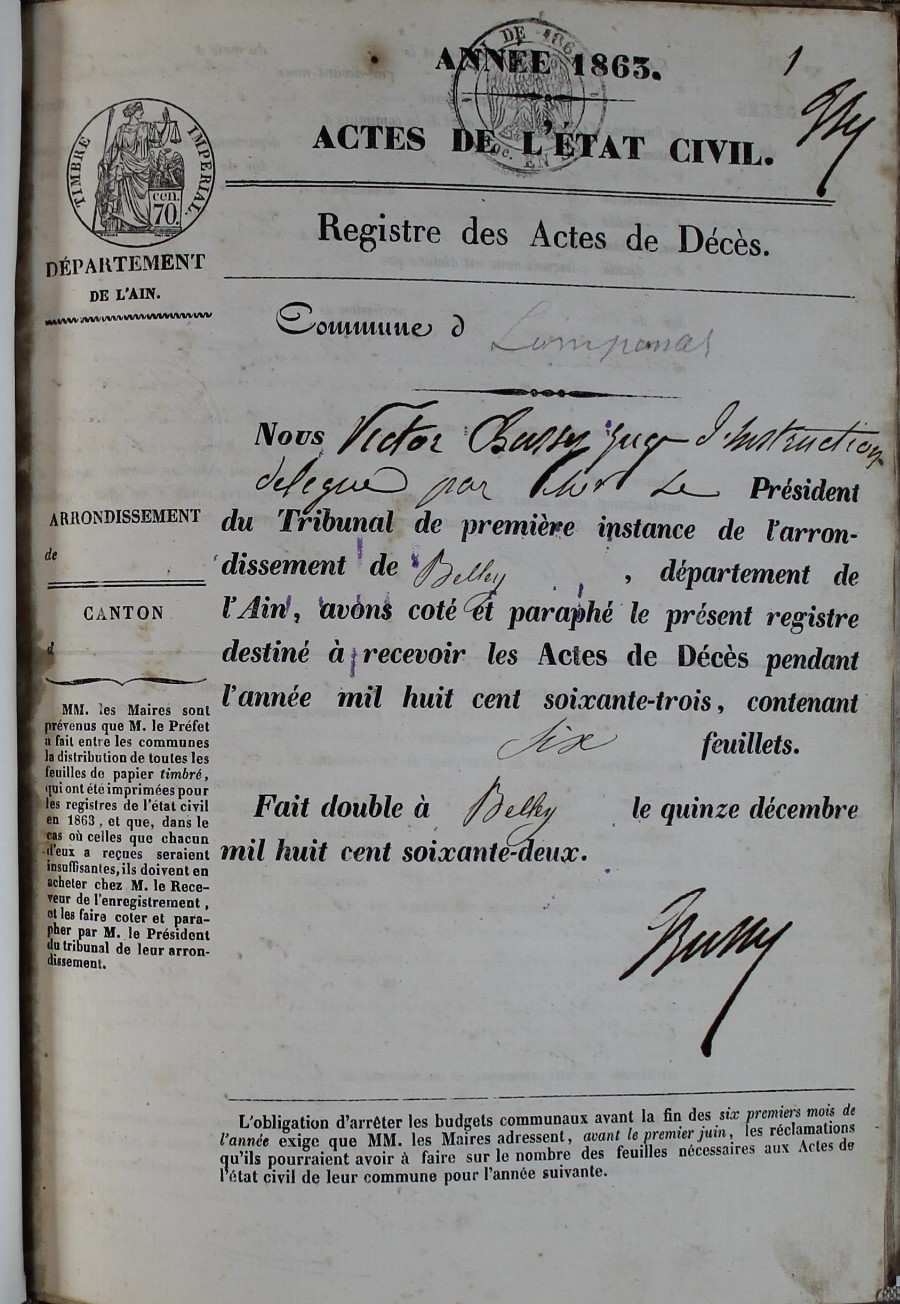 ANNÉE 1863.
1
ACTES DE L'ÉTAT CIVIL.
TIMBRE IMPERIAL.
cen.
70.
DÉPARTEMENT
DE L'AIN.
Registre des Actes de Décès.
Commune d Lompnas
Nous Victor Bussy juge d'instruction
délégué par le Président
du Tribunal de première instance de l'arron-
dissement de Belley, département de
l'Ain, avons coté et paraphé le présent registre
destiné à recevoir les Actes de Décès pendant
l'année mil huit cent soixante-trois, contenant
six feuillets.
Fait double à Belley le quinze décembre
mil huit cent soixante-deux.
Bussy
ARRONDISSEMENT
de
CANTON
d
MM. les Maires sont
prévenus que M. le Préfet
a fait entre les communes
la distribution de toutes les
feuilles de papier timbré,
qui ont été imprimées pour
les registres de l'état civil
en 1863, et que, dans le
cas où celles que chacun
d'eux a reçues seraient
insuffisantes, ils doivent en
acheter chez M. le Rece-
veur de l'enregistrement,
et les faire coter et para-
pher par M. le Président
du tribunal de leur arron-
dissement.
L'obligation d'arrêter les budgets communaux avant la fin des six premiers mois de
l'année exige que MM. les Maires adressent, avant le premier juin, les réclamations
qu'ils pourraient avoir à faire sur le nombre des feuilles nécessaires aux Actes de
l'état civil de leur commune pour l'année suivante.